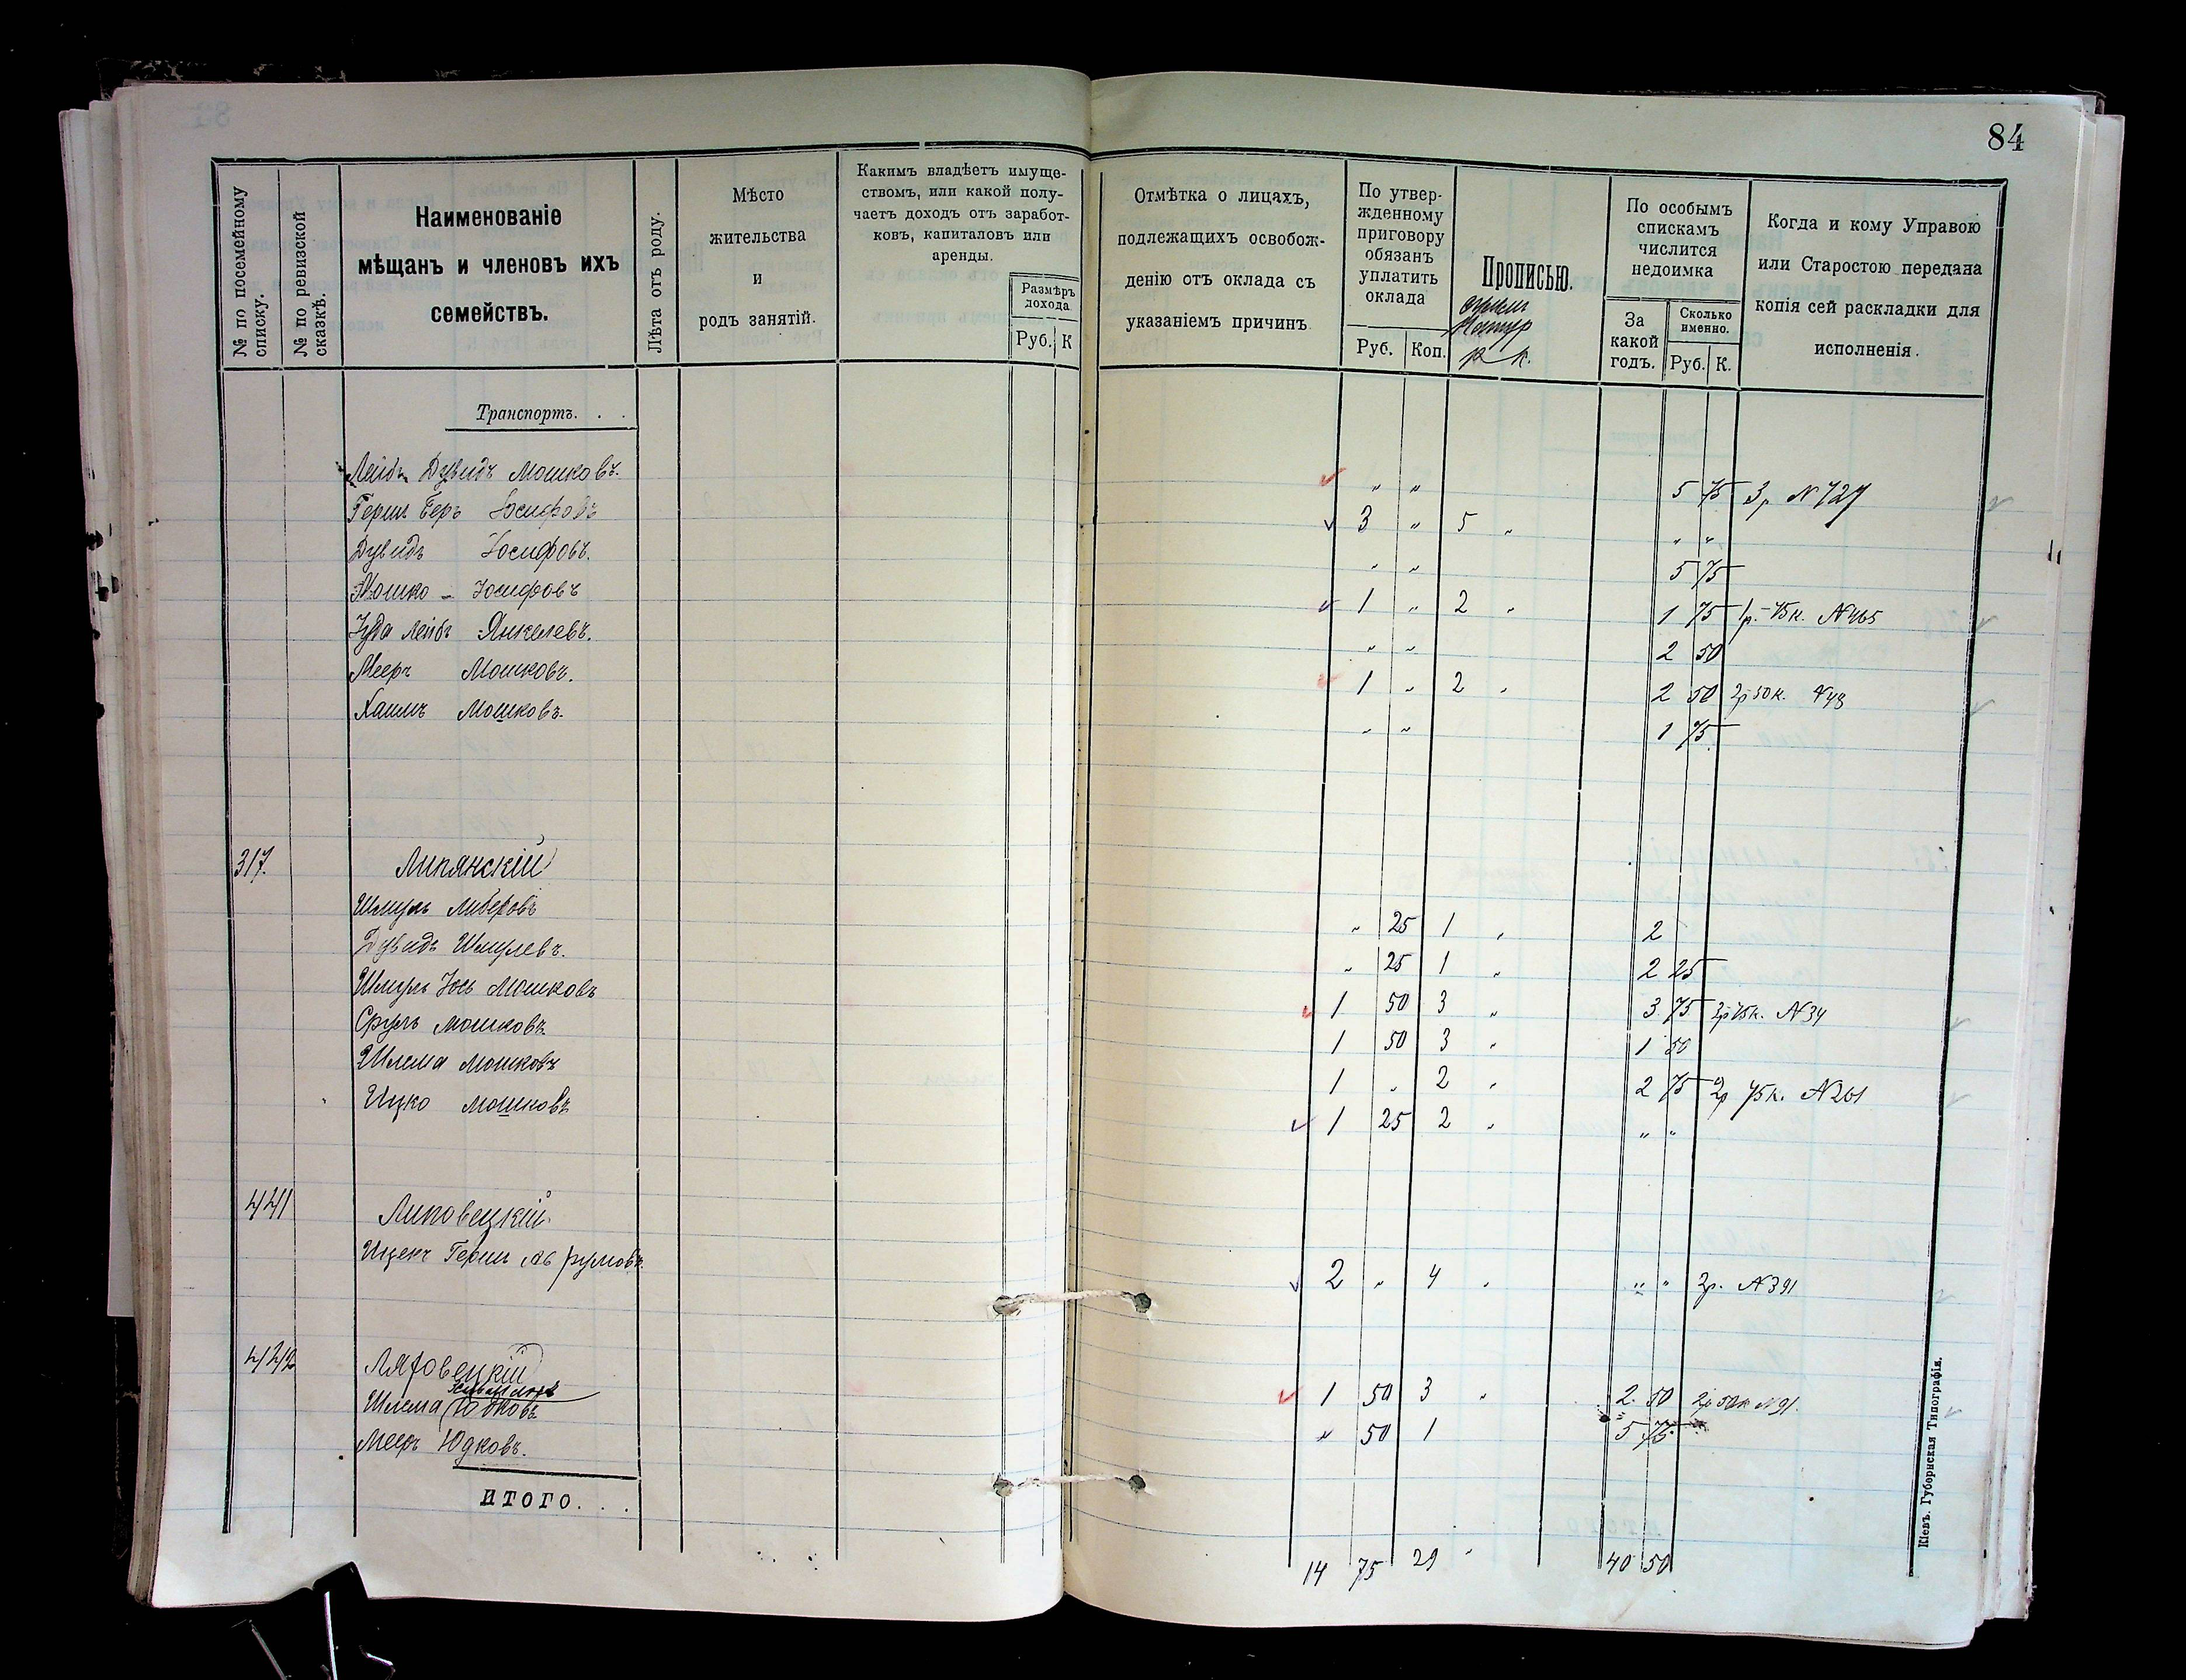 84
№ по посемейному списку.
№ по ревизской сказкѣ.
Наименованіе мѣщанъ и членовъ ихъ семействъ.
Лѣта отъ роду.
Мѣсто жительства и родъ занятій.
Какимъ владѣетъ имуще-
ствомъ, или какой полу-
чаетъ доходъ отъ заработ-
ковъ, капиталовъ или
аренды.
Размѣръ дохода
Руб. К
Отмѣтка о лицахъ,
подлежащихъ освобож-
денію отъ оклада съ
указаніемъ причинъ.
По утвер-
жденному
приговору
обязанъ
уплатить
оклада
Руб. Коп.
Прописью.
р к.
По особымъ
спискамъ
числится
недоимка
За какой годъ.
Сколько именно.
Руб. К.
Когда и кому Управою
или Старостою передана
копія сей раскладки для
исполненія.
Транспортъ. . .
Лейбъ Дувидъ Мошковъ. " " 5 75 3р N 727
Герш Беръ Іосифовъ 3 " 5 " " "
Дувидъ Іосифовъ. " " 5 75
Мошко - Іосифовъ 1 " 2 " 1 75 1р.-75к. N465
Іуда Лейбъ Янкелевъ. " " 2 50
Мееръ Мошковъ. 1 " 2 " 2 50 2р 50к. N48
Хаимъ Мошковъ. " " 1 75
317. Липянскій
Шмуль Либеровъ " 25 1 " 2
Дувидъ Шмулевъ. " 25 1 " 2 25
Шмуль Іось Мошковъ 1 50 3 " 3 75 3р 75к. N34
Сруль Мошковъ 1 50 3 " 1 50
Шлема Мошковъ 1 " 2 " 2 75 2р 75к. N261
Ицко Мошковъ 1 25 2 " " "
441 Липовецкій
Ицекъ Герш Аврумовъ. 2 " 4 " " " 2р. N391
442 Ляховецкій
Шлема 1 50 3 " 2. 50 2р 50к N91.
Мееръ Юдковъ. " 50 1 5 75
ИТОГО. . .
14 75 29 " 40 50
Кіевъ. Губернская Типографія.